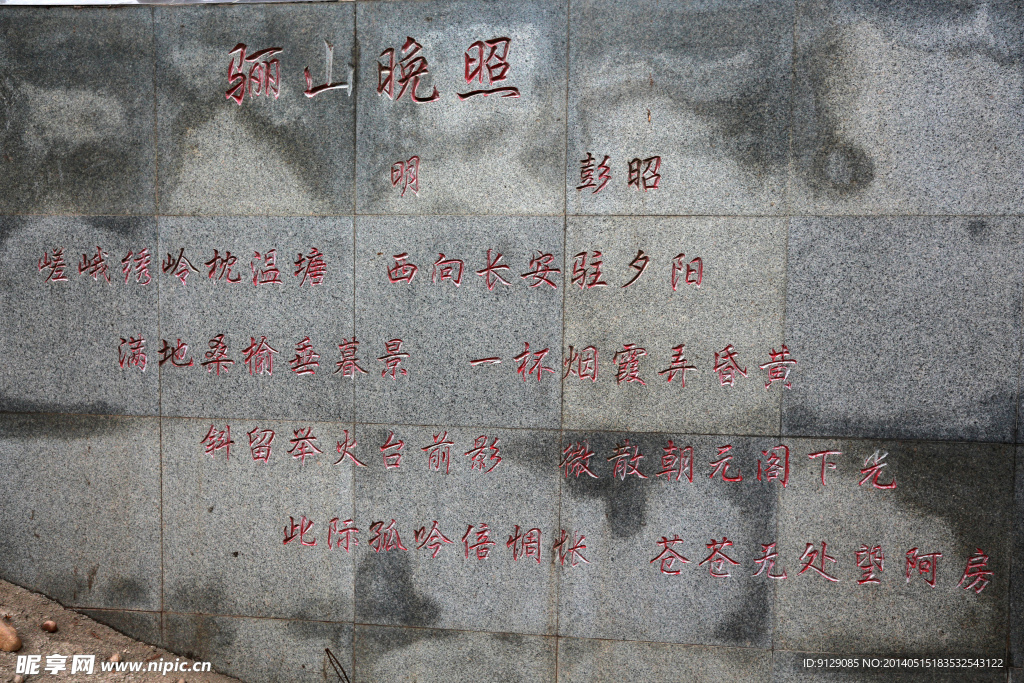 骊山晚照
明 彭昭
嵯峨绣岭枕温塘 西向长安驻夕阳
满地桑榆垂暮景 一杯烟霞弄昏黄
斜留举火台前影 微散朝元阁下光
此际孤吟倍惆怅 苍苍无处望阿房
昵享网 www.nipic.cn
ID:9129085 NO:20140515183532543122